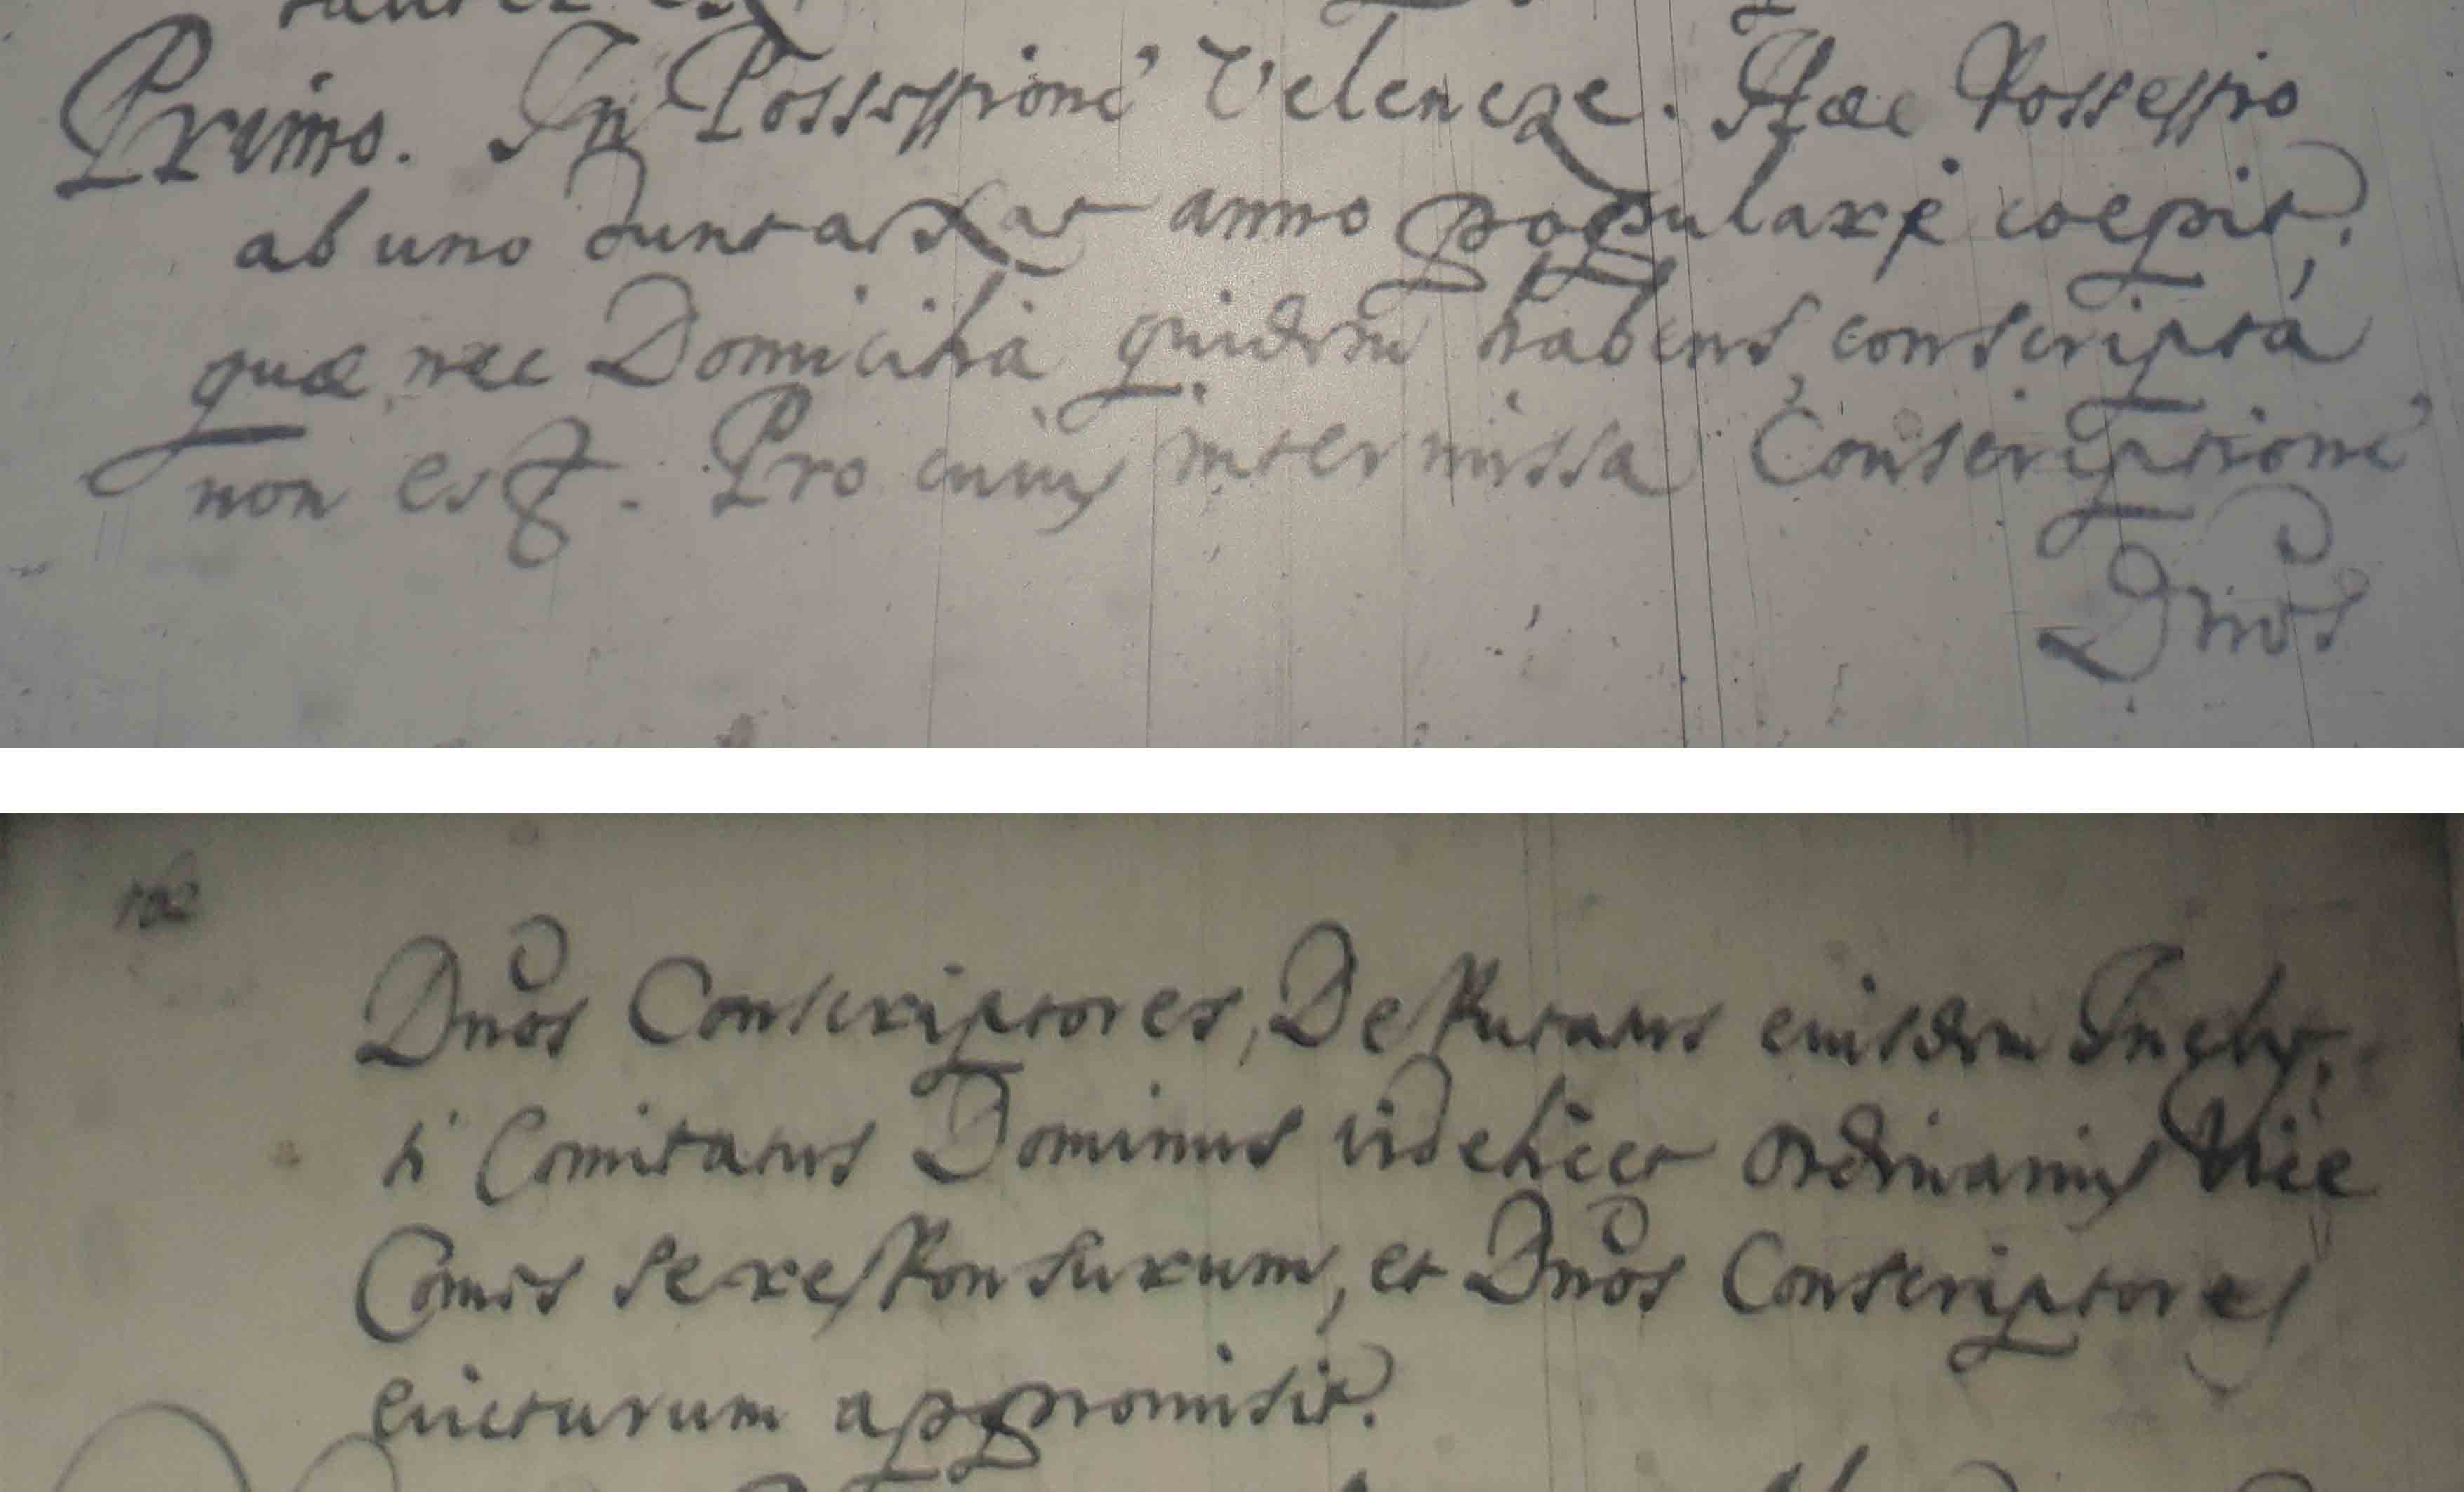 Primo. In Possessione Velencze. Hæc Possessio
ab uno duntaxat anno populari coepit,
quæ nec Domicilia quidem habens, conscripta
non est. Pro cuius intermissa Conscriptione
Dnos
162
Dnos Conscriptores, Deputatus eiusdem Incly-
ti Comitatus Dominus videlicet Ordinarius Vice
Comes se responsurum, et Dnos Conscriptores
evicturum appromisit.